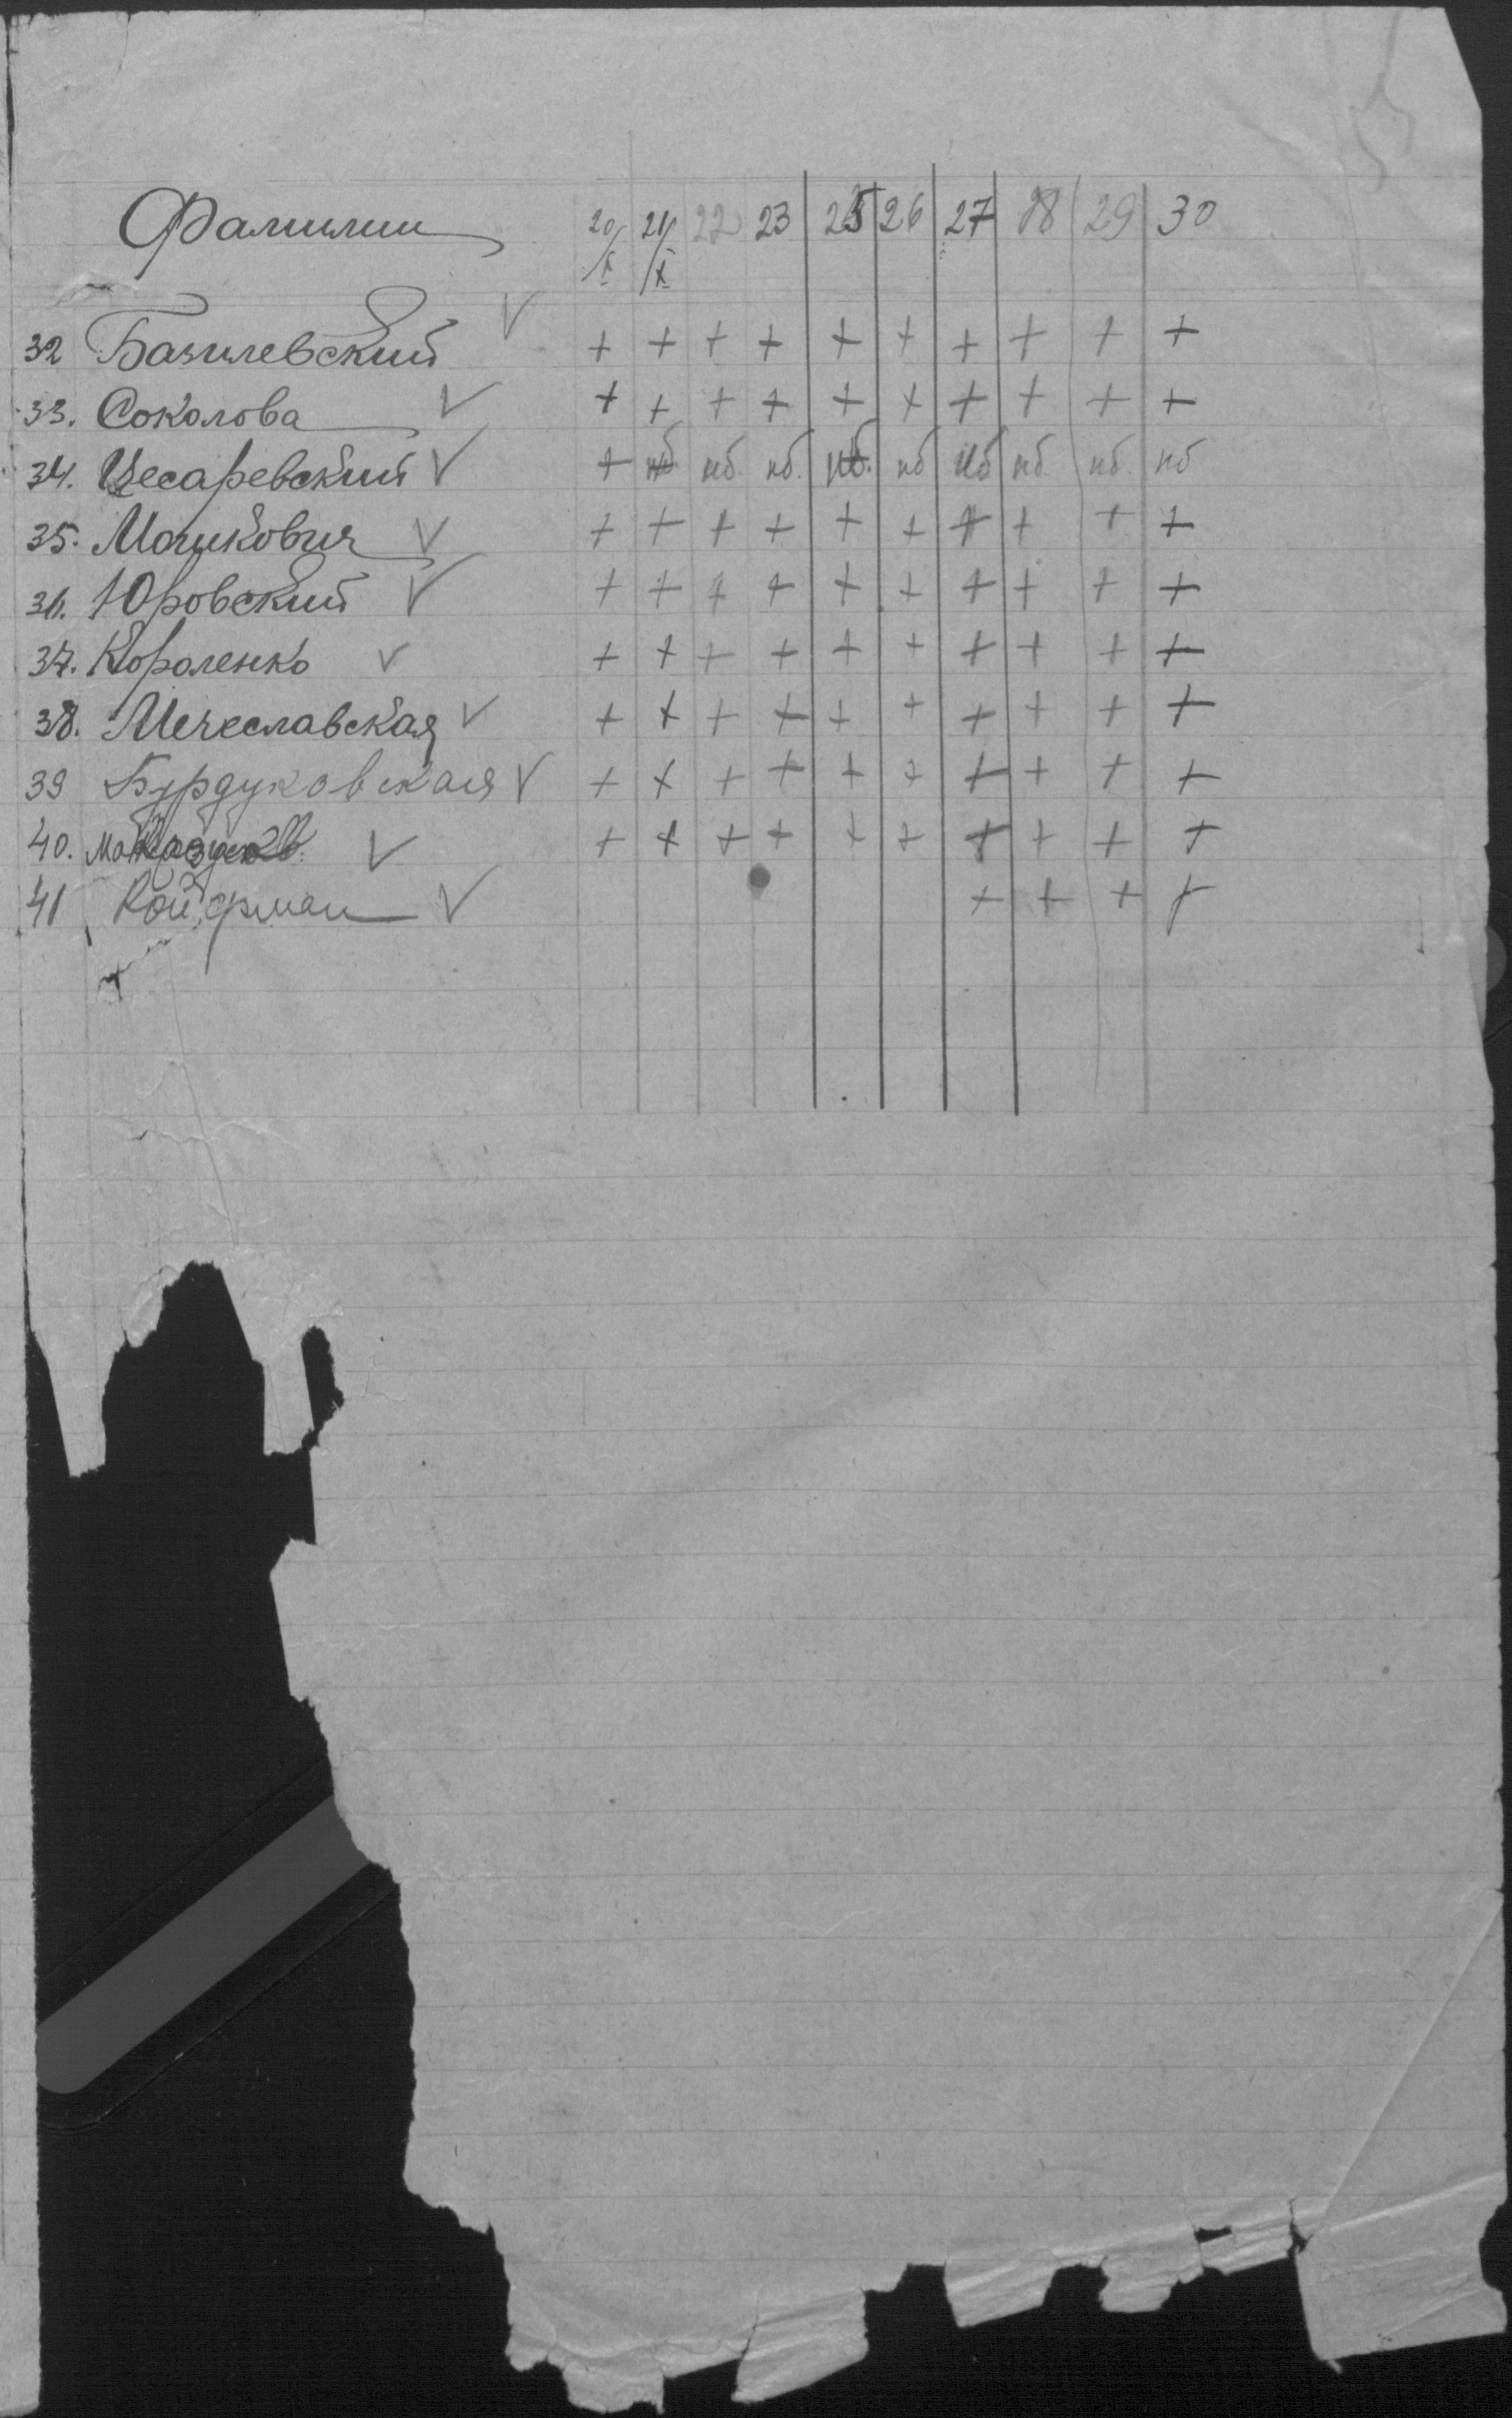 Фамилии 20/X 21/X 22 23 25 26 27 28 29 30
32 Базилевский V + + + + + + + + + +
33. Соколова V + + + + + + + + + +
34. Цесаревский V + нб. нб. нб. нб. нб нб нб. нб. нб
35. Мошкович V + + + + + + + + + +
36. Юровский V + + + + + + + + + +
37. Короленко V + + + + + + + + + +
38. Мечеславская V + + + + + + + + + +
39 Бурдуковская V + + + + + + + + + +
40. V + + + + + + + + + +
41 Койфман V + + + +